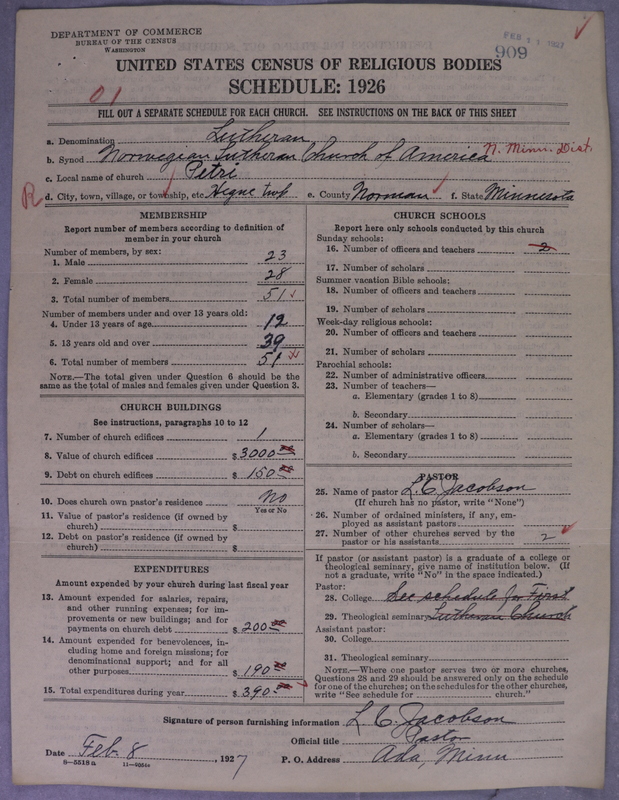 DEPARTMENT OF COMMERCE
BUREAU OF THE CENSUS
WASHINGTON
FEB 11 1927
909
UNITED STATES CENSUS OF RELIGIOUS BODIES
SCHEDULE: 1926
01
FILL OUT A SEPARATE SCHEDULE FOR EACH CHURCH. SEE INSTRUCTIONS ON THE BACK OF THIS SHEET
a. Denomination Lutheran
b. Synod Norwegian Lutheran Church of America N. Minn. Dist.
c. Local name of church Petri
R d. City, town, village, or township, etc. Hegne twp e. County Norman f. State Minnesota
MEMBERSHIP
Report number of members according to definition of
member in your church
Number of members, by sex:
1. Male 23
2. Female 28
3. Total number of members 51
Number of members under and over 13 years old:
4. Under 13 years of age 12
5. 13 years old and over 39
6. Total number of members 51
NOTE.—The total given under Question 6 should be the
same as the total of males and females given under Question 3.
CHURCH BUILDINGS
See instructions, paragraphs 10 to 12
7. Number of church edifices 1
8. Value of church edifices $ 3000
9. Debt on church edifices $ 150
10. Does church own pastor's residence No
Yes or No
11. Value of pastor's residence (if owned by
church) $
12. Debt on pastor's residence (if owned by
church) $
EXPENDITURES
Amount expended by your church during last fiscal year
13. Amount expended for salaries, repairs,
and other running expenses; for im-
provements or new buildings; and for
payments on church debt $ 200
14. Amount expended for benevolences, in-
cluding home and foreign missions; for
denominational support; and for all
other purposes $ 190
15. Total expenditures during year $ 390
CHURCH SCHOOLS
Report here only schools conducted by this church
Sunday schools:
16. Number of officers and teachers 2
17. Number of scholars
Summer vacation Bible schools:
18. Number of officers and teachers
19. Number of scholars
Week-day religious schools:
20. Number of officers and teachers
21. Number of scholars
Parochial schools:
22. Number of administrative officers
23. Number of teachers—
a. Elementary (grades 1 to 8)
b. Secondary
24. Number of scholars—
a. Elementary (grades 1 to 8)
b. Secondary
PASTOR
25. Name of pastor L. C. Jacobson
(If church has no pastor, write "None")
26. Number of ordained ministers, if any, em-
ployed as assistant pastors
27. Number of other churches served by the
pastor or his assistants 2
If pastor (or assistant pastor) is a graduate of a college or
theological seminary, give name of institution below. (If
not a graduate, write "No" in the space indicated.)
Pastor:
28. College See schedule for First
29. Theological seminary Lutheran Church
Assistant pastor:
30. College
31. Theological seminary
NOTE.—Where one pastor serves two or more churches,
Questions 28 and 29 should be answered only on the schedule
for one of the churches; on the schedules for the other churches,
write "See schedule for church."
Signature of person furnishing information L. C. Jacobson
Official title Pastor
Date Feb. 8, 1927 P. O. Address Ada, Minn
8—5518a 11—9054